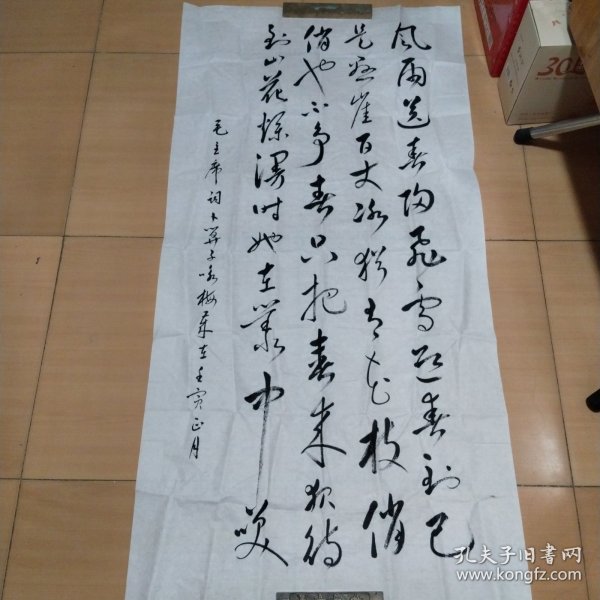 风雨送春归飞雪迎春到已
是悬崖百丈冰犹有花枝俏
俏也不争春只把春来报待
到山花烂漫时她在丛中笑
毛主席词卜算子咏梅岁在壬寅正月
30
孔夫子旧书网
www.kongfz.com